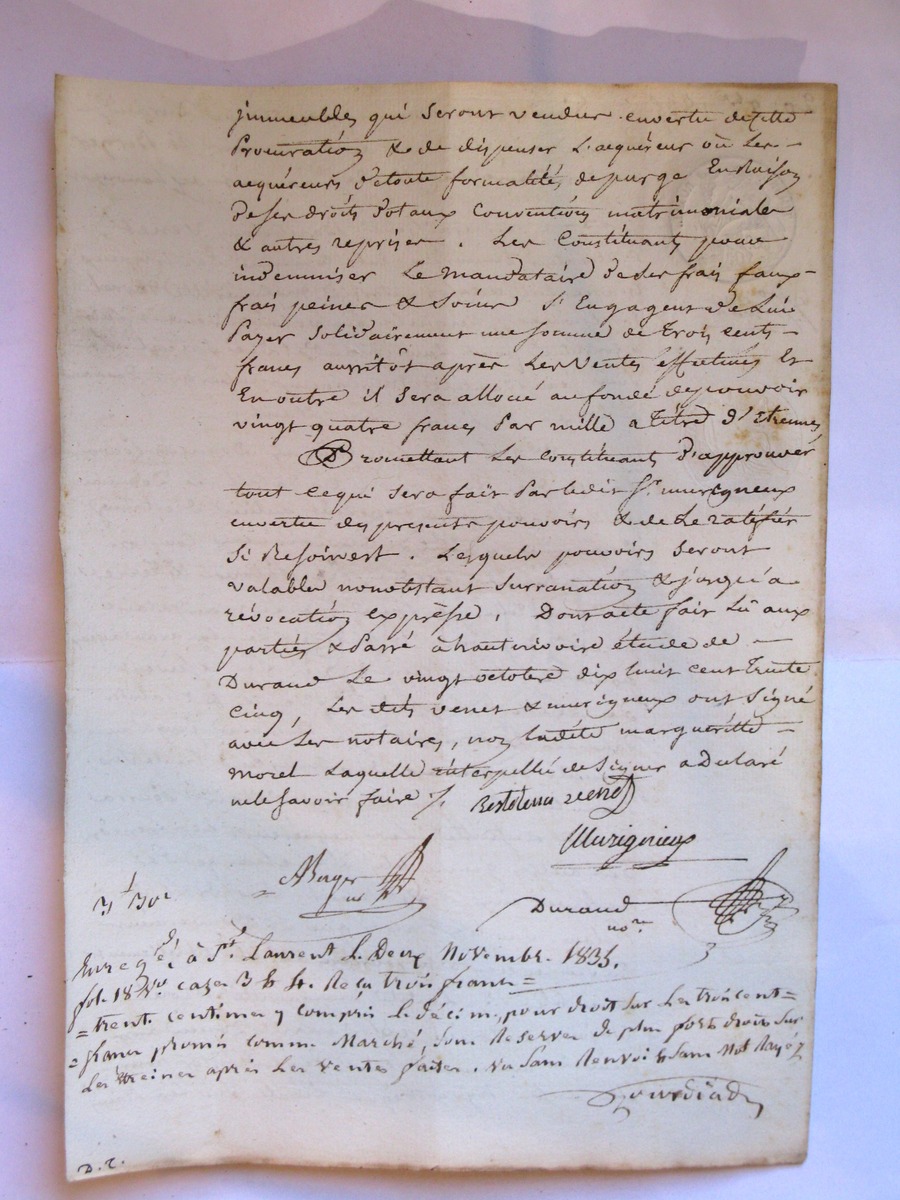 immeubles qui seront vendus en vertu de cette
Procuration & de dispenser l'acquéreur où les –
acquéreurs de toute formalités de purge En Raison
de ses droits dotaux Conventions matrimoniales
& autres reprises. Les Constituants pour
indemniser le Mandataire de ses frais faux –
frais peines & Soins S'Engagent de Lui
Payer solidairement une somme de trois cents –
francs aussitôt après les Ventes effectuées Et
En outre il sera alloué au fondé de pouvoir
vingt quatre francs Par mille a titre d'Etrennes
Promettant les Constituants d'approuver
tout ce qui sera fait Par ledit Sr. murigneux
en vertu des présents pouvoirs & de le ratifier
Si Besoin est. Lesquels pouvoirs seront
valables nonobstant Surranation & jusqu'a
révocation expresse. Dont acte fait lû aux
parties & Passé à hauterivoire étude de –
Durand Le vingt octobre dix huit cent Trente
Cinq, Les dits venet & murigneux ont Signé
avec les notaires, non ladite marguéritte –
morel Laquelle interpellée de Signer a Déclaré
ne le Savoir faire ./.
venet
Murigneux
ABerger
nre
Durand
nore
Enregé. à St. Laurent le Deux Novembre 1835.
fol. 18 Vo. cases 3 & 4. Reçu trois francs =
= trente centimes y compris le décime, pour droit sur les trois cent =
= francs promis comme Marché, sous Réserve de plus forts droits sur
les étreines après les ventes faites. vu Sans Renvoi & Sans Mot Rayé
D. T.